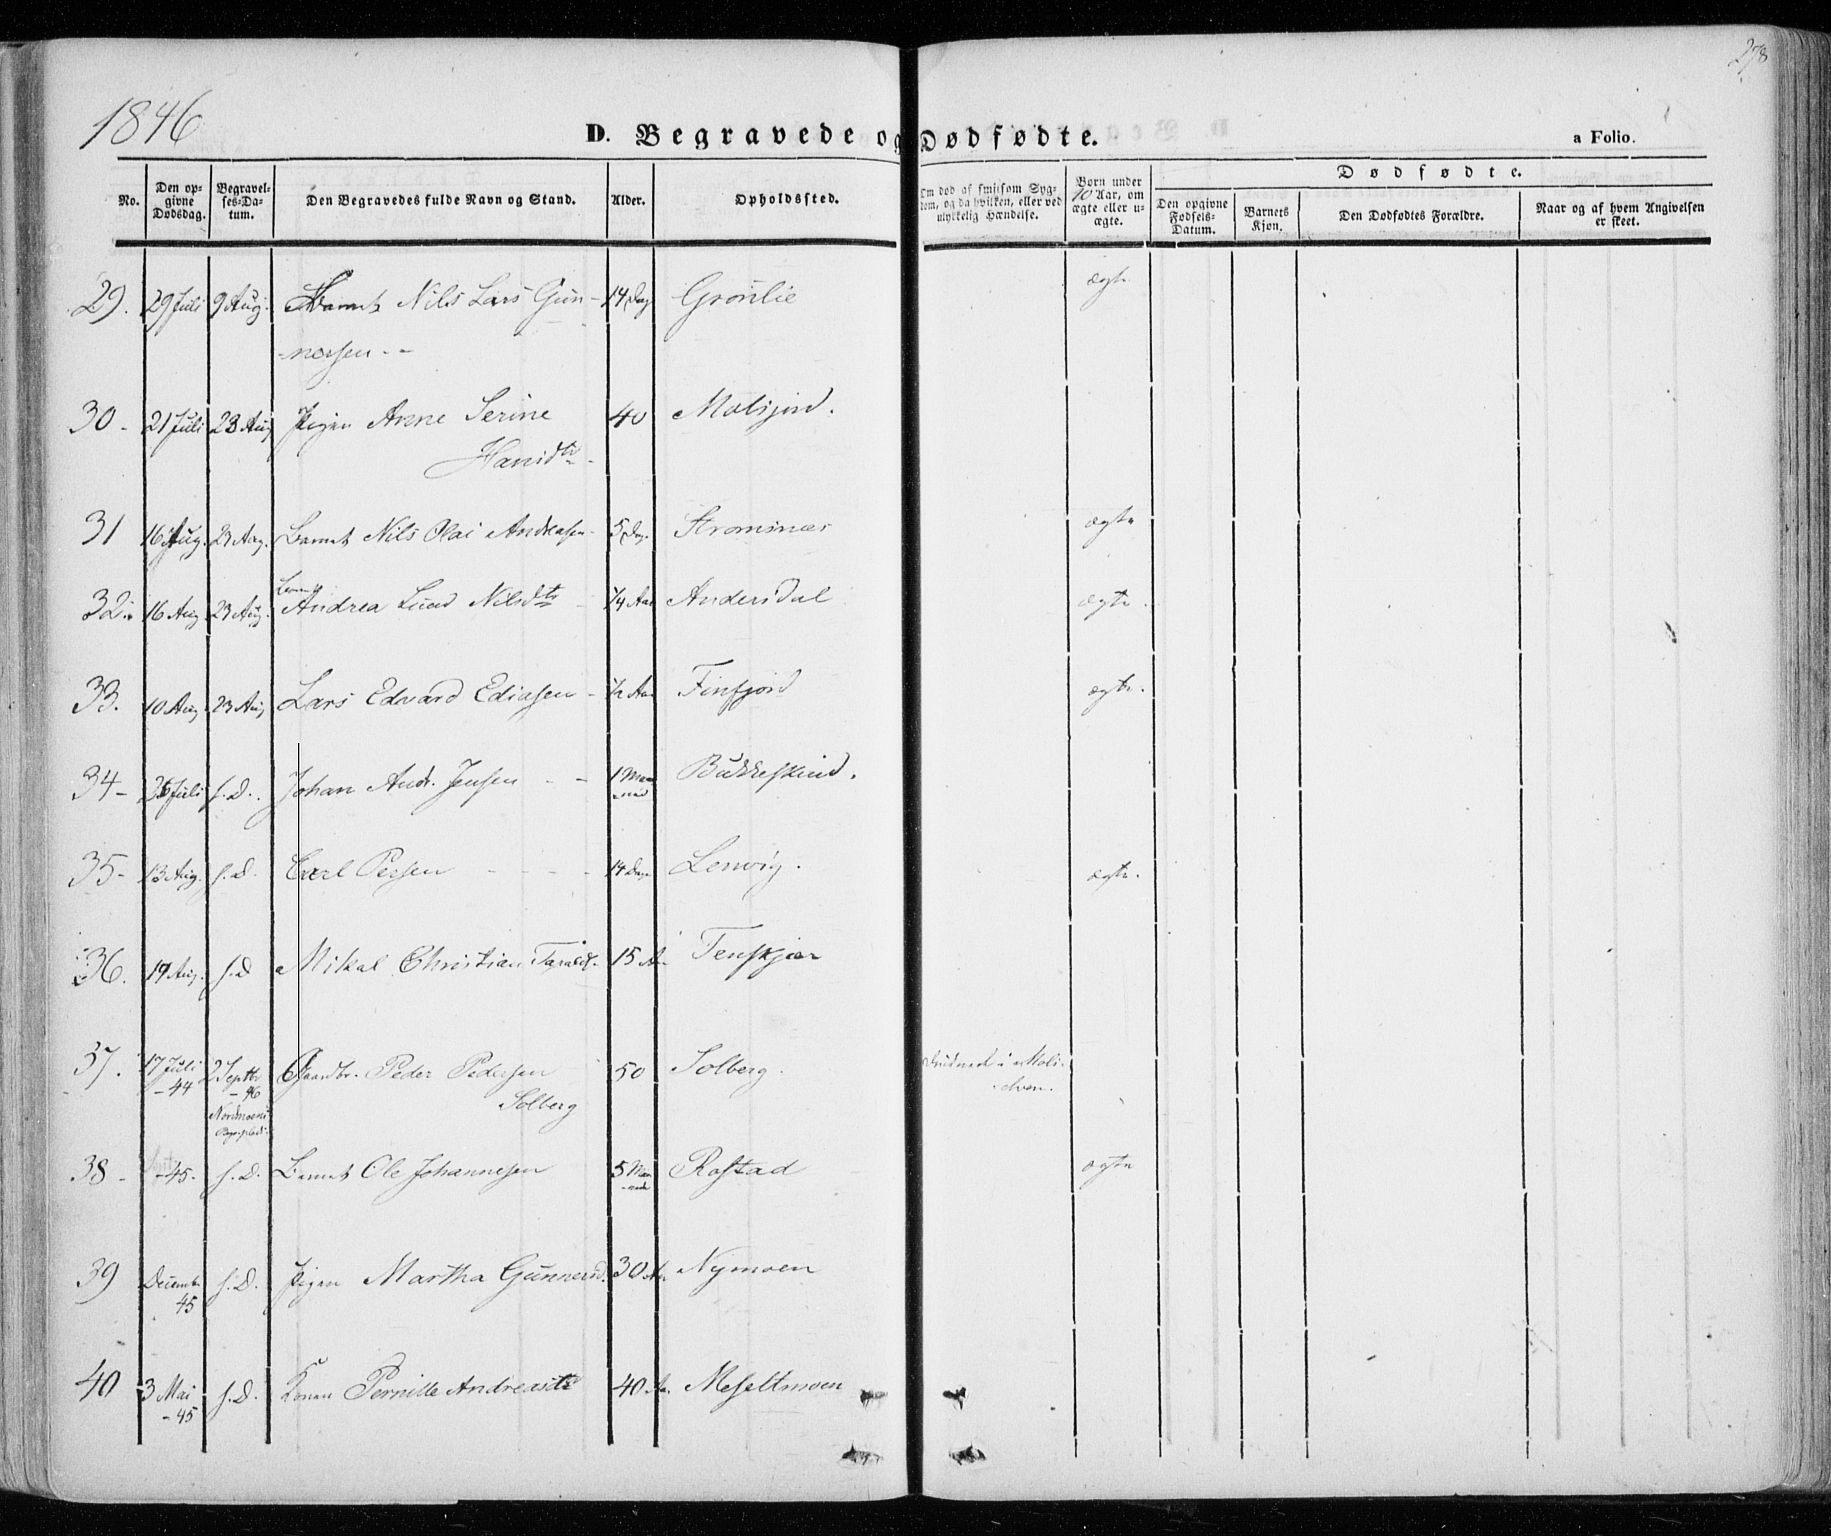 278
1846
D. Begravede og Dødfødte.
a Folio.
No.
Den op-
givne
Dødsdag.
Begravel-
ses-Da-
tum.
Den Begravedes fulde Navn og Stand.
Alder.
Opholdssted.
Om død af smitsom Syg-
dom, og da hvilken, eller ved
ulykkelig Hændelse.
Børn under
10 Aar, om
ægte eller u-
ægte.
Dødfødte.
Den opgivne
Fødsels-
Datum.
Barnets
Kjøn.
Den Dødfødtes Forældre.
Naar og af hvem Angivelsen
er skeet.
29. 29 Juli 9 Aug. Barnet Nils Lars Gun- 14 Dage Grønlie ægte
-nersen --
30 - 21 Juli 23 Aug Pigen Anne Serine 40
Hansdtr -
31 16 Aug. 23 Aug. Barnet Nils Olai Andreasen - 5 Dage Strømsnes ægte
Barnet
32. 16 Aug 23 Aug. Andrea Nilsdtr - 1/4 Aar Andersdal ægte.
33. 10 Aug 23 Aug Lars Edvard Ediasen - 1/2 Aar Finfjord ægte.
34 - Juli s.D. Johan Andr. Jensen - - 1 Maa-
-ned
35 - 13 Aug. s.D. Carl Persen - - - - 14 Dage Lenvig. ægte.
36. Aug. s.D Mikal Christian Taralds. 15 Aar Tenskjær
37. 17 Juli 2 Septbr Gaardbr. Peder Pedersen 50 Solberg. Druknede i Mals-
-44 -46 Solberg -elven.
Nordmoens
Begr.plads.
38 - -45. s.D. Barnet Ole Johannesen 5 Maa- Rostad ægte
-neder
39 Decemb. s.D. Pigen Martha Gunnersd. 30 Aar Nymoen
45
40 3 Mai s.D. Konen Pernille Andreasdtr 40 Aar. Meseltmoen
-45